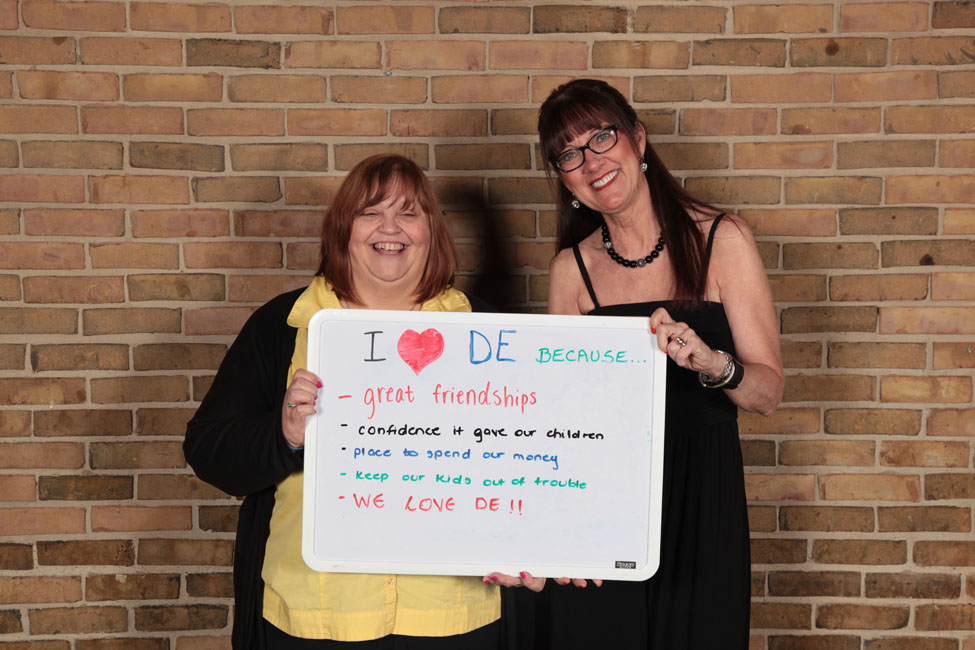 I ❤ DE BECAUSE...
- great friendships
- confidence it gave our children
- place to spend our money
- keep our kids out of trouble
- WE LOVE DE!!